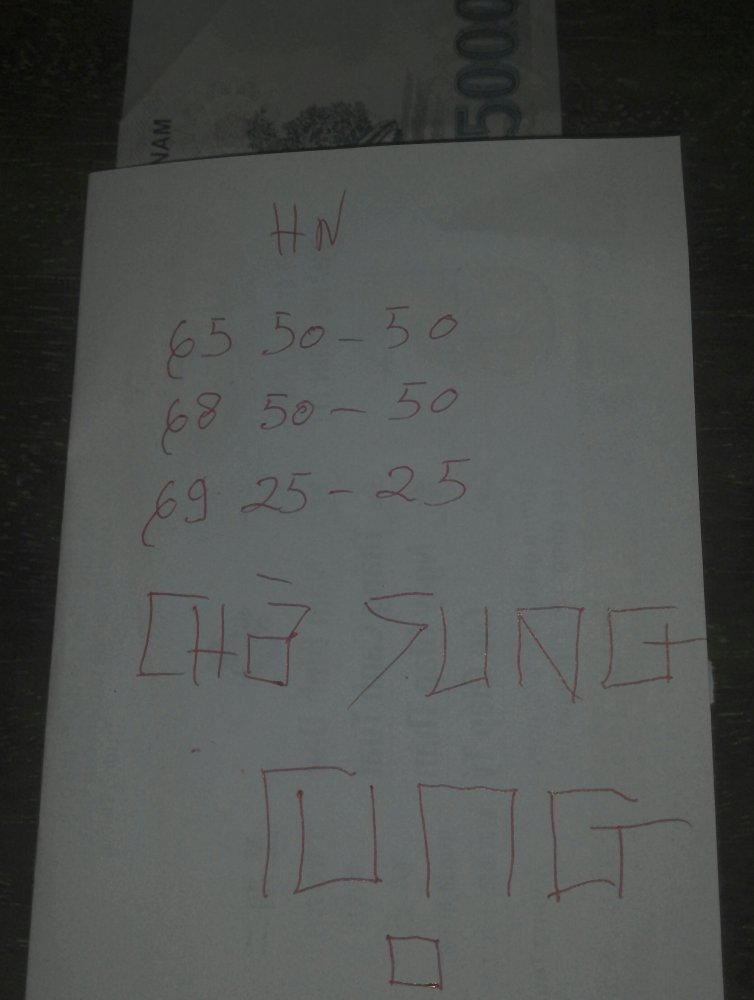 NAM
5000
HN
65 50 - 50
68 50 - 50
69 25 - 25
SUNG